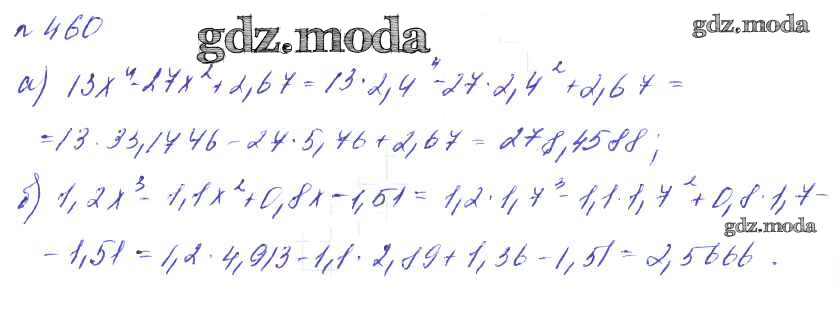 № 460
gdz.moda
gdz.moda
а) 13x⁴-27x²+2,67 = 13·2,4⁴-27·2,4²+2,67 =
=13·33,1776-27·5,76+2,67 = 278,4588;
б) 1,2x³-1,1x²+0,8x-1,51 = 1,2·1,7³-1,1·1,7²+0,8·1,7-
gdz.moda
-1,51 = 1,2·4,913-1,1·2,89+1,36-1,51 = 2,5666.